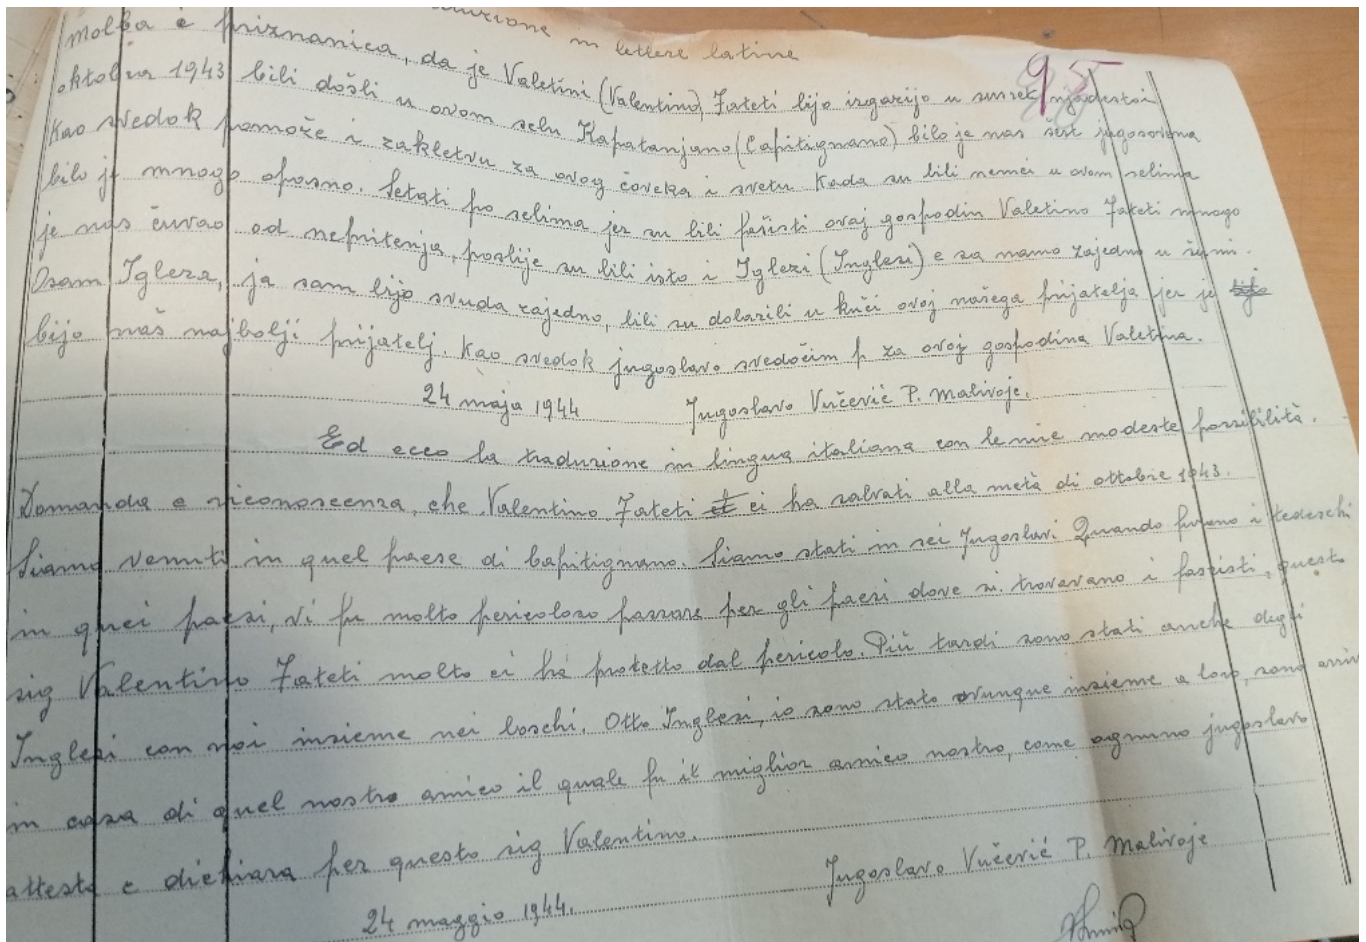 in lettere latine
95
Molba e priznanica, da je Valetini (Valentino) Fateti bijo izgarijo u
oktobra 1943 bili došli u ovom selu Kapatanjano (Capitignano) bilo je nas šest jugosovena
Kao svedok pomože i zakletvu za ovog čoveka i svetu Kada su bili nemci u ovom selima
bilo je mnogo oposno. Šetati po selima jer su bili fašisti ovaj gospodin Valetino Fateti mnogo
je nas čuvao od nepritenja, poslije su bili isto i Iglezi (Inglesi) e sa namo zajedno u šumi.
Osam Igleza, ja sam bijo svuda zajedno, bili su dolazili u kući ovoj našega prijatelja jer je
bijo naš najbolji prijatelj. Kao svedok jugoslavo svedočim p za ovoj gospodina Valetina.
24 maja 1944 Jugoslavo Vučević P. Malivoje.
Ed ecco la traduzione in lingua italiana con le mie modeste possibilità.
Domanda e riconoscenza, che Valentino Fateti ci ha salvati alla metà di ottobre 1943.
Siamo venuti in quel paese di Capitignano. Siamo stati in sei Jugoslavi Quando furono i tedeschi
in quei paesi, vi fu molto pericoloso passare per gli paesi dove si trovavano i fascisti, questo
sig Valentino Fateti molto ci ha protetto dal pericolo. Più tardi sono stati anche degli
Inglesi con noi insieme nei boschi. Otto Inglesi, io sono stato ovunque insieme a loro, sono
in casa di quel nostro amico il quale fu il miglior amico nostro, come ognuno jugoslavo
attesta e dichiara per questo sig Valentino.
24 maggio 1944. Jugoslavo Vučević P. Malivoje